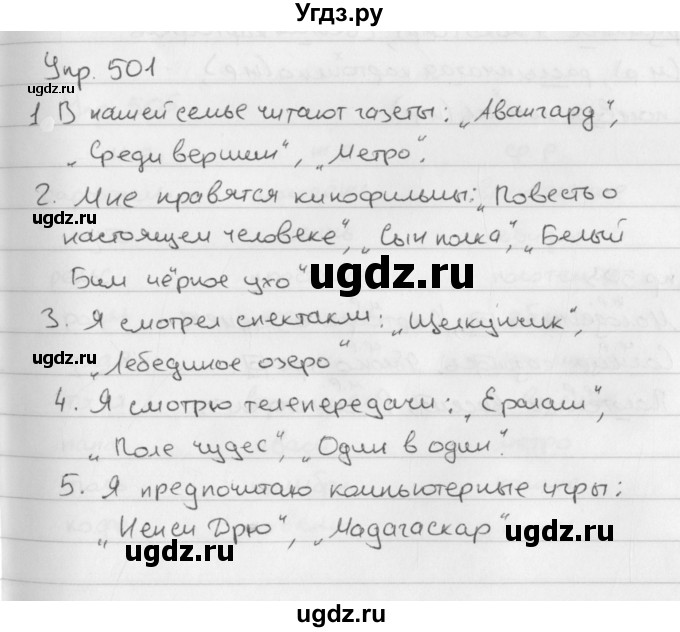 Угdз.ру
Упр. 501
1 В нашей семье читают газеты: „Авангард",
„Среди вершин", „Метро".
ugdz.ru
2. Мне нравятся кинофильмы: „Повесть о
ugdz.ru
настоящем человеке", „Сын полка", „Белый
Бим чёрное ухо"
ugdz.ru
3. Я смотрел спектакли: „Щелкунчик",
ugdz.ru
„Лебединое озеро"
4. Я смотрю телепередачи: „Ералаш",
„Поле чудес", „Один в один".
5. Я предпочитаю компьютерные игры:
„Ненси Дрю", „Мадагаскар"
ugdz.ru
ugdz.ru
ugdz.ru